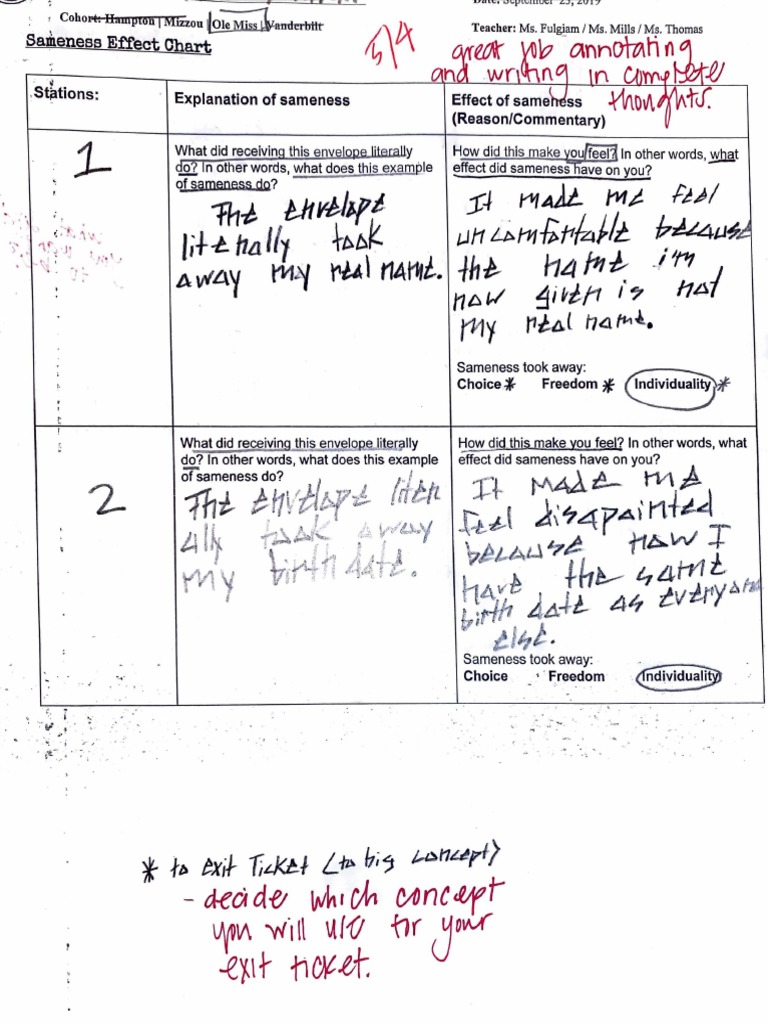 Date: September 23, 2019
Cohort: Hampton | Mizzou | Ole Miss | Vanderbilt
Teacher: Ms. Fulgiam / Ms. Mills / Ms. Thomas
Sameness Effect Chart
5/4
great job annotating
and writing in complete
thoughts.
Stations:
Explanation of sameness
Effect of sameness
(Reason/Commentary)
1
What did receiving this envelope literally
do? In other words, what does this example
of sameness do?
The envelope
literally took
away my real name.
How did this make you feel? In other words, what
effect did sameness have on you?
It made me feel
uncomfortable because
the name i'm
now given is not
my real name.
Sameness took away:
Choice * Freedom * Individuality *
2
What did receiving this envelope literally
do? In other words, what does this example
of sameness do?
The envelope liter
ally took away
my birth date.
How did this make you feel? In other words, what
effect did sameness have on you?
It made me
feel disapointed
because now I
have the same
birth date as everyone
else.
Sameness took away:
Choice Freedom Individuality
* to exit Ticket (to big concept)
- decide which concept
you will use for your
exit ticket.